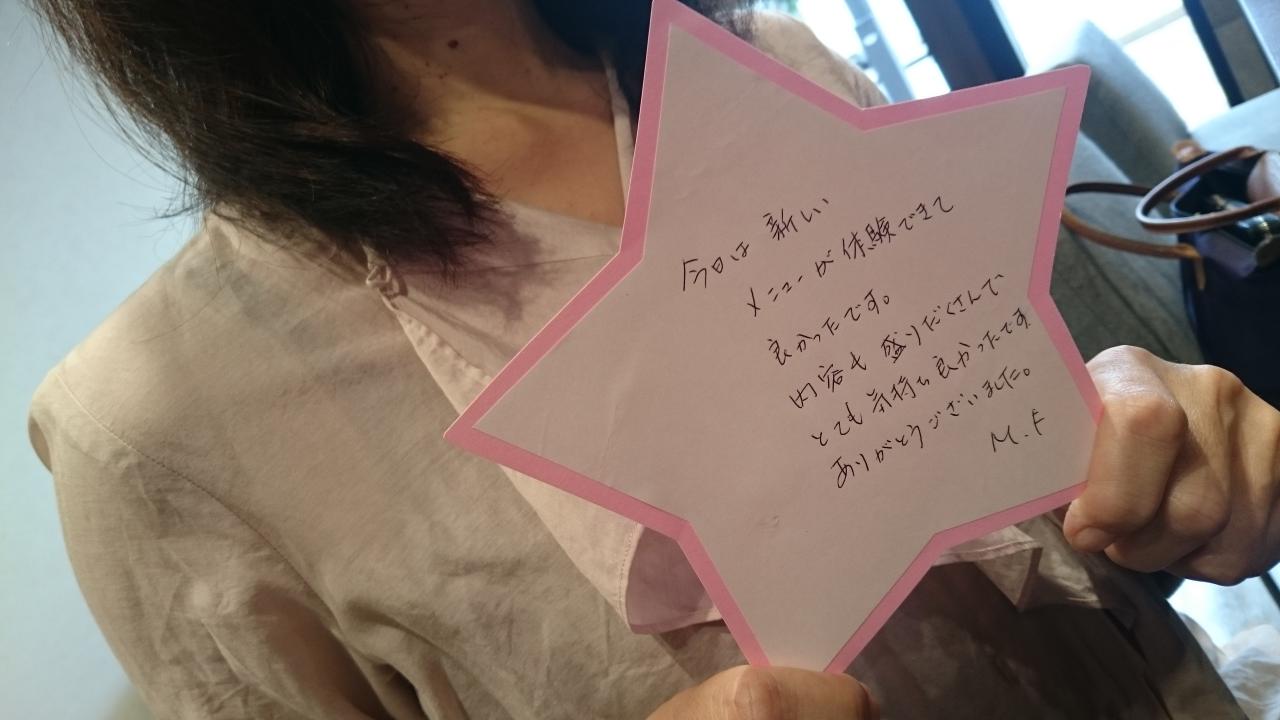 今日は 新しい
メニューが体験できて
良かったです。
内容も 盛りだくさんで
とても気持ち良かったです
ありがとうございました。
M.F